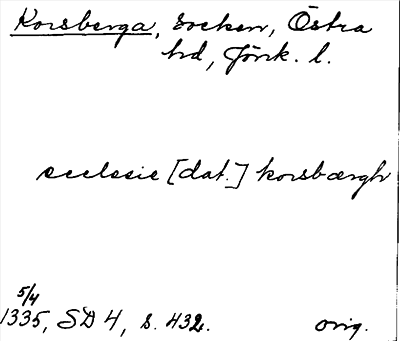 Korsberga, socken, Östra
hd, Jönk. l.
ecclesie [dat.] korsbærgh
5/4
1335, SD 4, s. 432. orig.